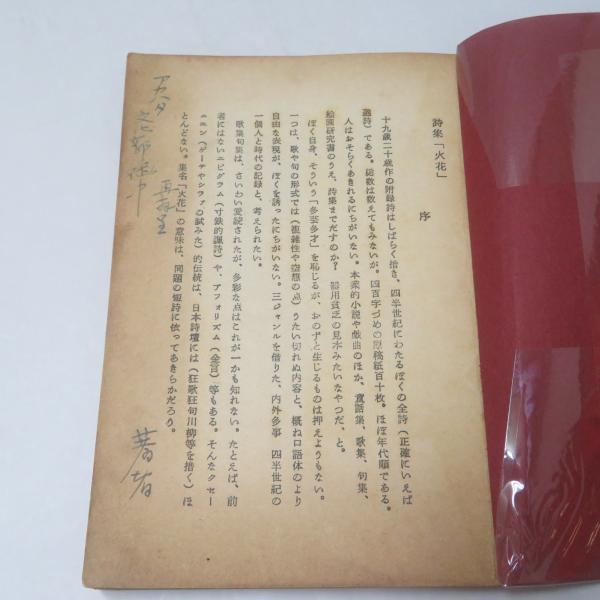 詩集「火花」
序
十九歳二十歳作の附録詩はしばらく措き、四半世紀にわたるぼくの全詩(正確にいえば
選詩)である。総数は数えてもみないが、四百字づめの原稿紙百十枚。ほぼ年代順である。
人はおそらくあきれるにちがいない。本柔的小説や戯曲のほか、童話集、歌集、句集、
絵画研究書のうえ、詩集までだすのか? 器用貧乏の見本みたいなやつだ、と。
ぼく自身、そういう「多芸多才」を恥じるが、おのずと生じるものは押えようもない。
一つは、歌や句の形式では(複雑性や空想の点)うたい切れぬ内容と、概ね口語体のより
自由な表現が、ぼくを誘ったにちがいない。三ジャンルを借りた、内外多事 四半世紀の
一個人と時代の記録と、考えられたい。
歌集句集は、さいわい愛読されたが、多彩な点はこれが一かも知れない。たとえば、前
者にはないエピグラム(寸鉄的諷詩)や、アフォリズム(金言)等もある。そんなクセー
ニエン(ゲーテやシラアの試みた)的伝統は、日本詩壇には(狂歌狂句川柳等を措く)ほ
とんどない。集名「火花」の意味は、同題の短詩に依ってあきらかだろう。
著者